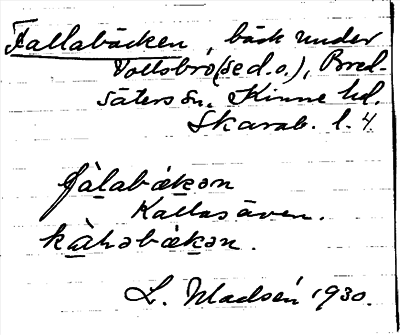 Fallabäcken, bäck under
Vollsbro (se d.o.), Bred-
säters sn. Kinne hd.
Skarab. l. 4.
fàlabǽkən
Kallas även.
bǽkən.
L. Madsén 1930.